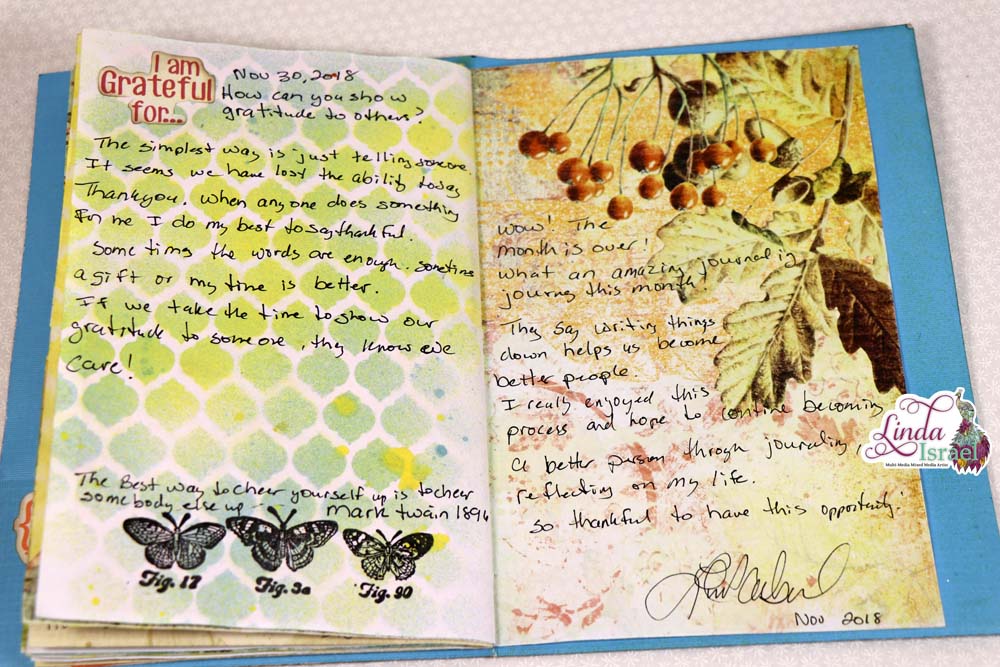 I am
Grateful
for...
Nov 30, 2018
How can you show
gratitude to others?
The simplest way is just telling someone.
It seems we have lost the ability today
Thankyou. When anyone does something
for me I do my best to say thankful.
Some tims the words are enough. Sometims
a gift or my time is better.
If we take the time to show our
gratitude to someone, they know we
Care!
The Best way to cheer yourself up is to cheer
somebody else up -
mark twain 1896
Fig. 17
Fig. 3a
Fig. 90
wow! The
month is over!
What an amazing journaling
journy this month!
They say writing things
down helps us become
better people.
I really enjoyed this
process and hope to contine becoming
a better person through journaling,
reflecting on my life.
So thankful to have this opportunity!
Nov 2018
Linda
Israel
Multi-Media Mixed Media Artist